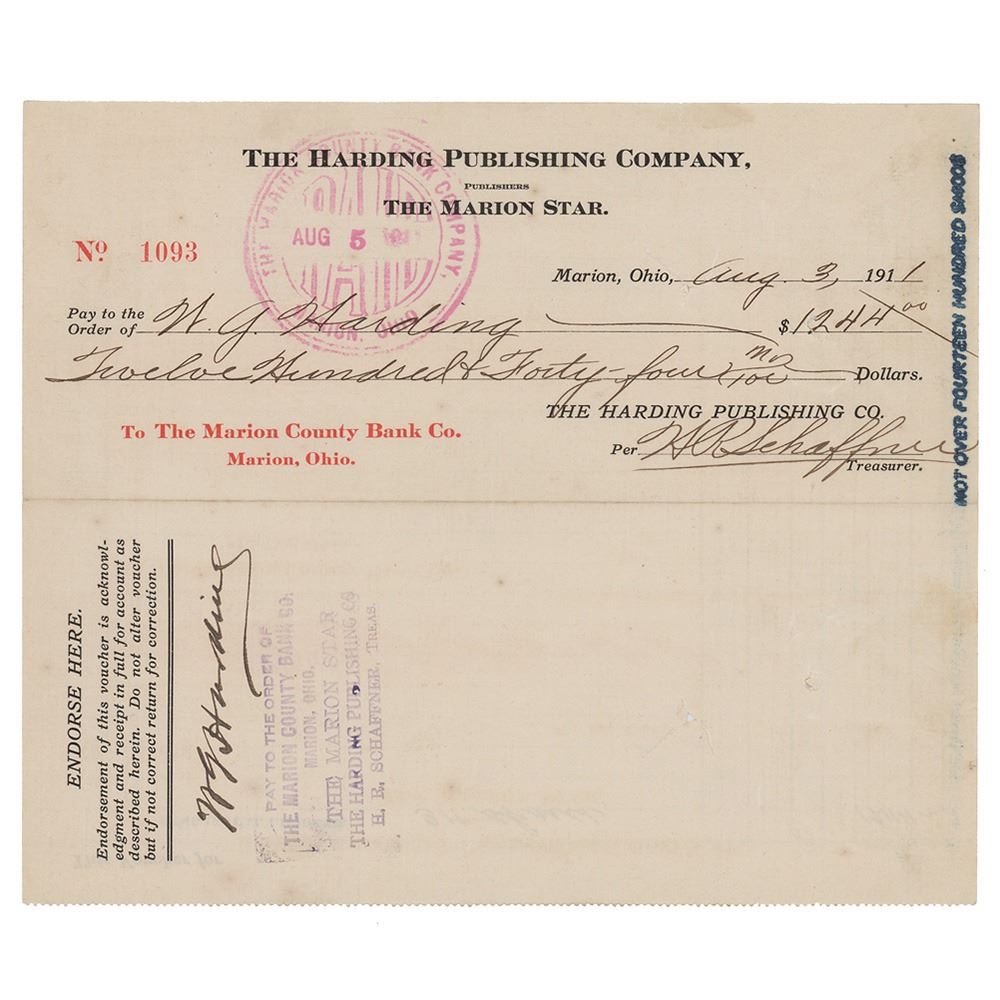 THE HARDING PUBLISHING COMPANY,
PUBLISHERS
THE MARION STAR.
THE MARION COUNTY BANK COMPANY,
PAID
AUG 5
MARION, OHIO
Nº 1093
Marion, Ohio, Aug. 3, 1911
Pay to the
Order of W. G. Harding $1244 00
Twelve Hundred & Forty-four no/100 Dollars.
THE HARDING PUBLISHING CO.
To The Marion County Bank Co.
Marion, Ohio.
Per H R Schaffner
Treasurer.
NOT OVER FOURTEEN HUNDRED $1400$
ENDORSE HERE.
Endorsement of this voucher is acknowl-
edgment and receipt in full for account as
described herein. Do not alter voucher
but if not correct return for correction.
W G Harding
PAY TO THE ORDER OF
THE MARION COUNTY BANK CO.
MARION, OHIO.
THE MARION STAR
THE HARDING PUBLISHING CO
H. R. SCHAFFNER, TREAS.